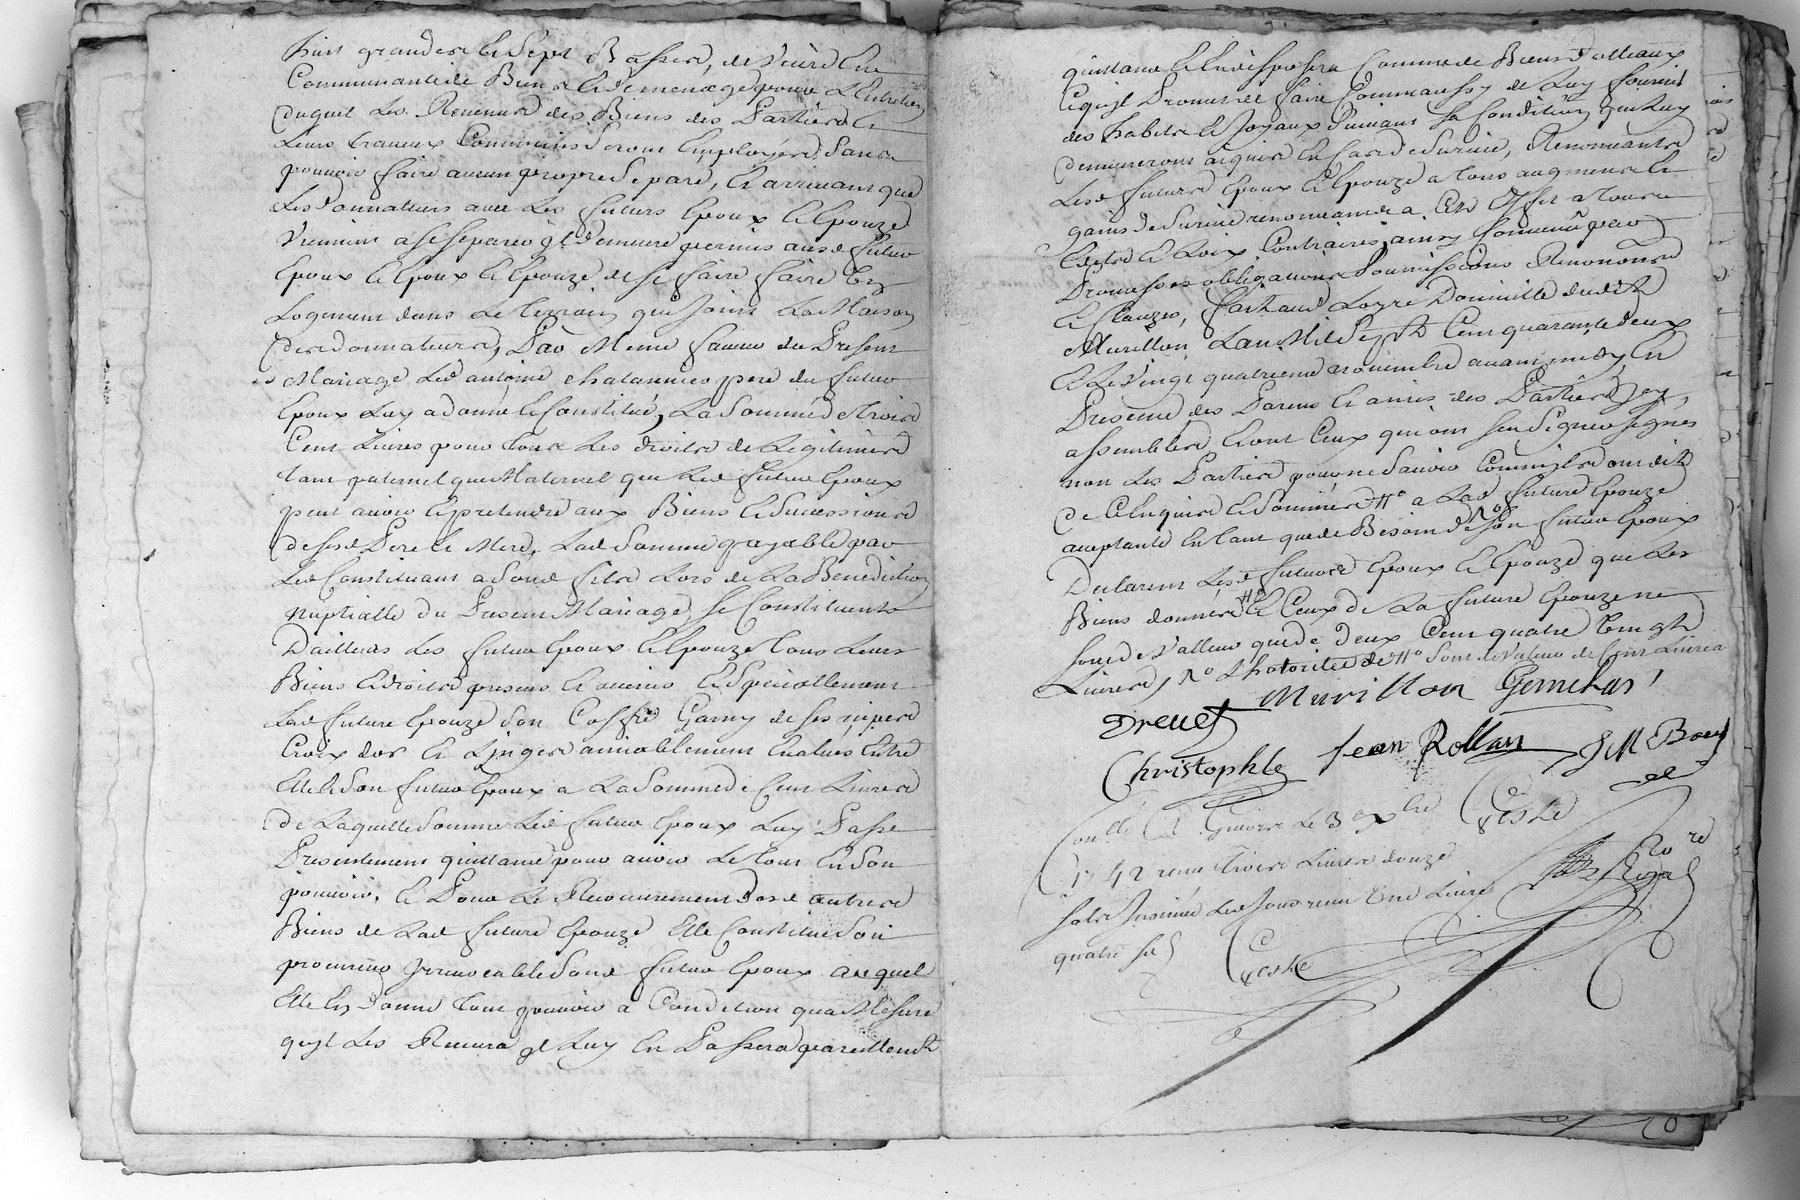 huit grandes et Sept Basses, de Vivre En
Communauté de Biens et de menage pour l'Entretien
Duquel Les Revenus des Biens des Parties Et
Leurs travaux Communs Seront Employés, Sans
pouvoir faire aucun propre Separé, Et arrivant que
Lesd donnateurs avec Les futurs Epoux Et Epouze
Vinsent a Se Separer il demeure permis ausd futur
Epoux Et Epouze de Se faire faire Un
Logement dans Le terrain qui Joint La Maison
des donnateurs, Par Meme faveur du Present
Mariage Led antoine pere du futur
Epoux Luy a donné et Constitué, La Somme de Trois
Cent Livres pour tous Les droits de Legitimes
tant paternel que Maternel que Led futur Epoux
peut avoir Et pretendre aux Biens Et Successions
de Sesd Pere Et Mere, Lad Somme payable par
Led Constituant a Sond fils Lors de La Benediction
Nuptialle du Present Mariage, Se Constituants
Dailleurs Les futur Epoux Et Epouze tous Leurs
Biens Et droits presens Et avenir Et Speciallement
Lad future Epouze Son Coffre Garny de Ses nipes
Croix dor Et Linges amiablement Evalués Entre
Elle Et Son futur Epoux a La Somme de Cent Livres
De Laquelle Somme Led futur Epoux Luy Passe
Presentement quittance pour avoir Le tout En Son
pouvoir, Et Pour Le Recouvrement des autres
Biens de Lad future Epouze Elle Constitue Son
procureur Irrevocable Sond futur Epoux auquel
Elle En Donne tout pouvoir a Condition qua Mesure
quil Les Recevra il Luy En Passera pareillement
quittance Et En disposera Comme de Biens dottaux
Et quil Promet de faire Comme aussy de Luy fournir
des habits Et Joyaux Suivant Sa Condition qui Luy
demeureront acquis En Cas de Survie, Renonçants
Lesd futurs Epoux Et Epouze a tous augment Et
gains de Survie renonceants a Cet Effet a tous
Edits Et Loix Contraires, ainsy Convenu par
Promesses obligations Soumissions Renonces
Et Clauzes, fait aud Domicille dudit
Murillon Lan Mil Sept Cent quarante deux
Et Le Vingt quatrieme novembre avant midy, En
Presence des Parens Et amis des Parties Icy
assemblés Dont Ceux qui ont Sçu Signer Signés
non Les Parties pour ne Sçavoir Comme Elles ont dit
De Ce Enquises Et Sommées a Lad future Epouze
acceptante En tant que de Besoin de Son futur Epoux
Declarent Lesd futurs Epoux Et Epouze que Les
Biens donnés Et Ceux de La future Epouze ne
Sont de Valleur que de deux Cent quatre Vingt
Livres, Sont de Valeur de Cent Livres
Murillon
Drevet
Christophle Jean Rollan J M
le 3 xbre
1742 reçu Trois Livres douze
Sols Insinué Led Jour reçu Une Livre
quatre Sols
No re
Royal